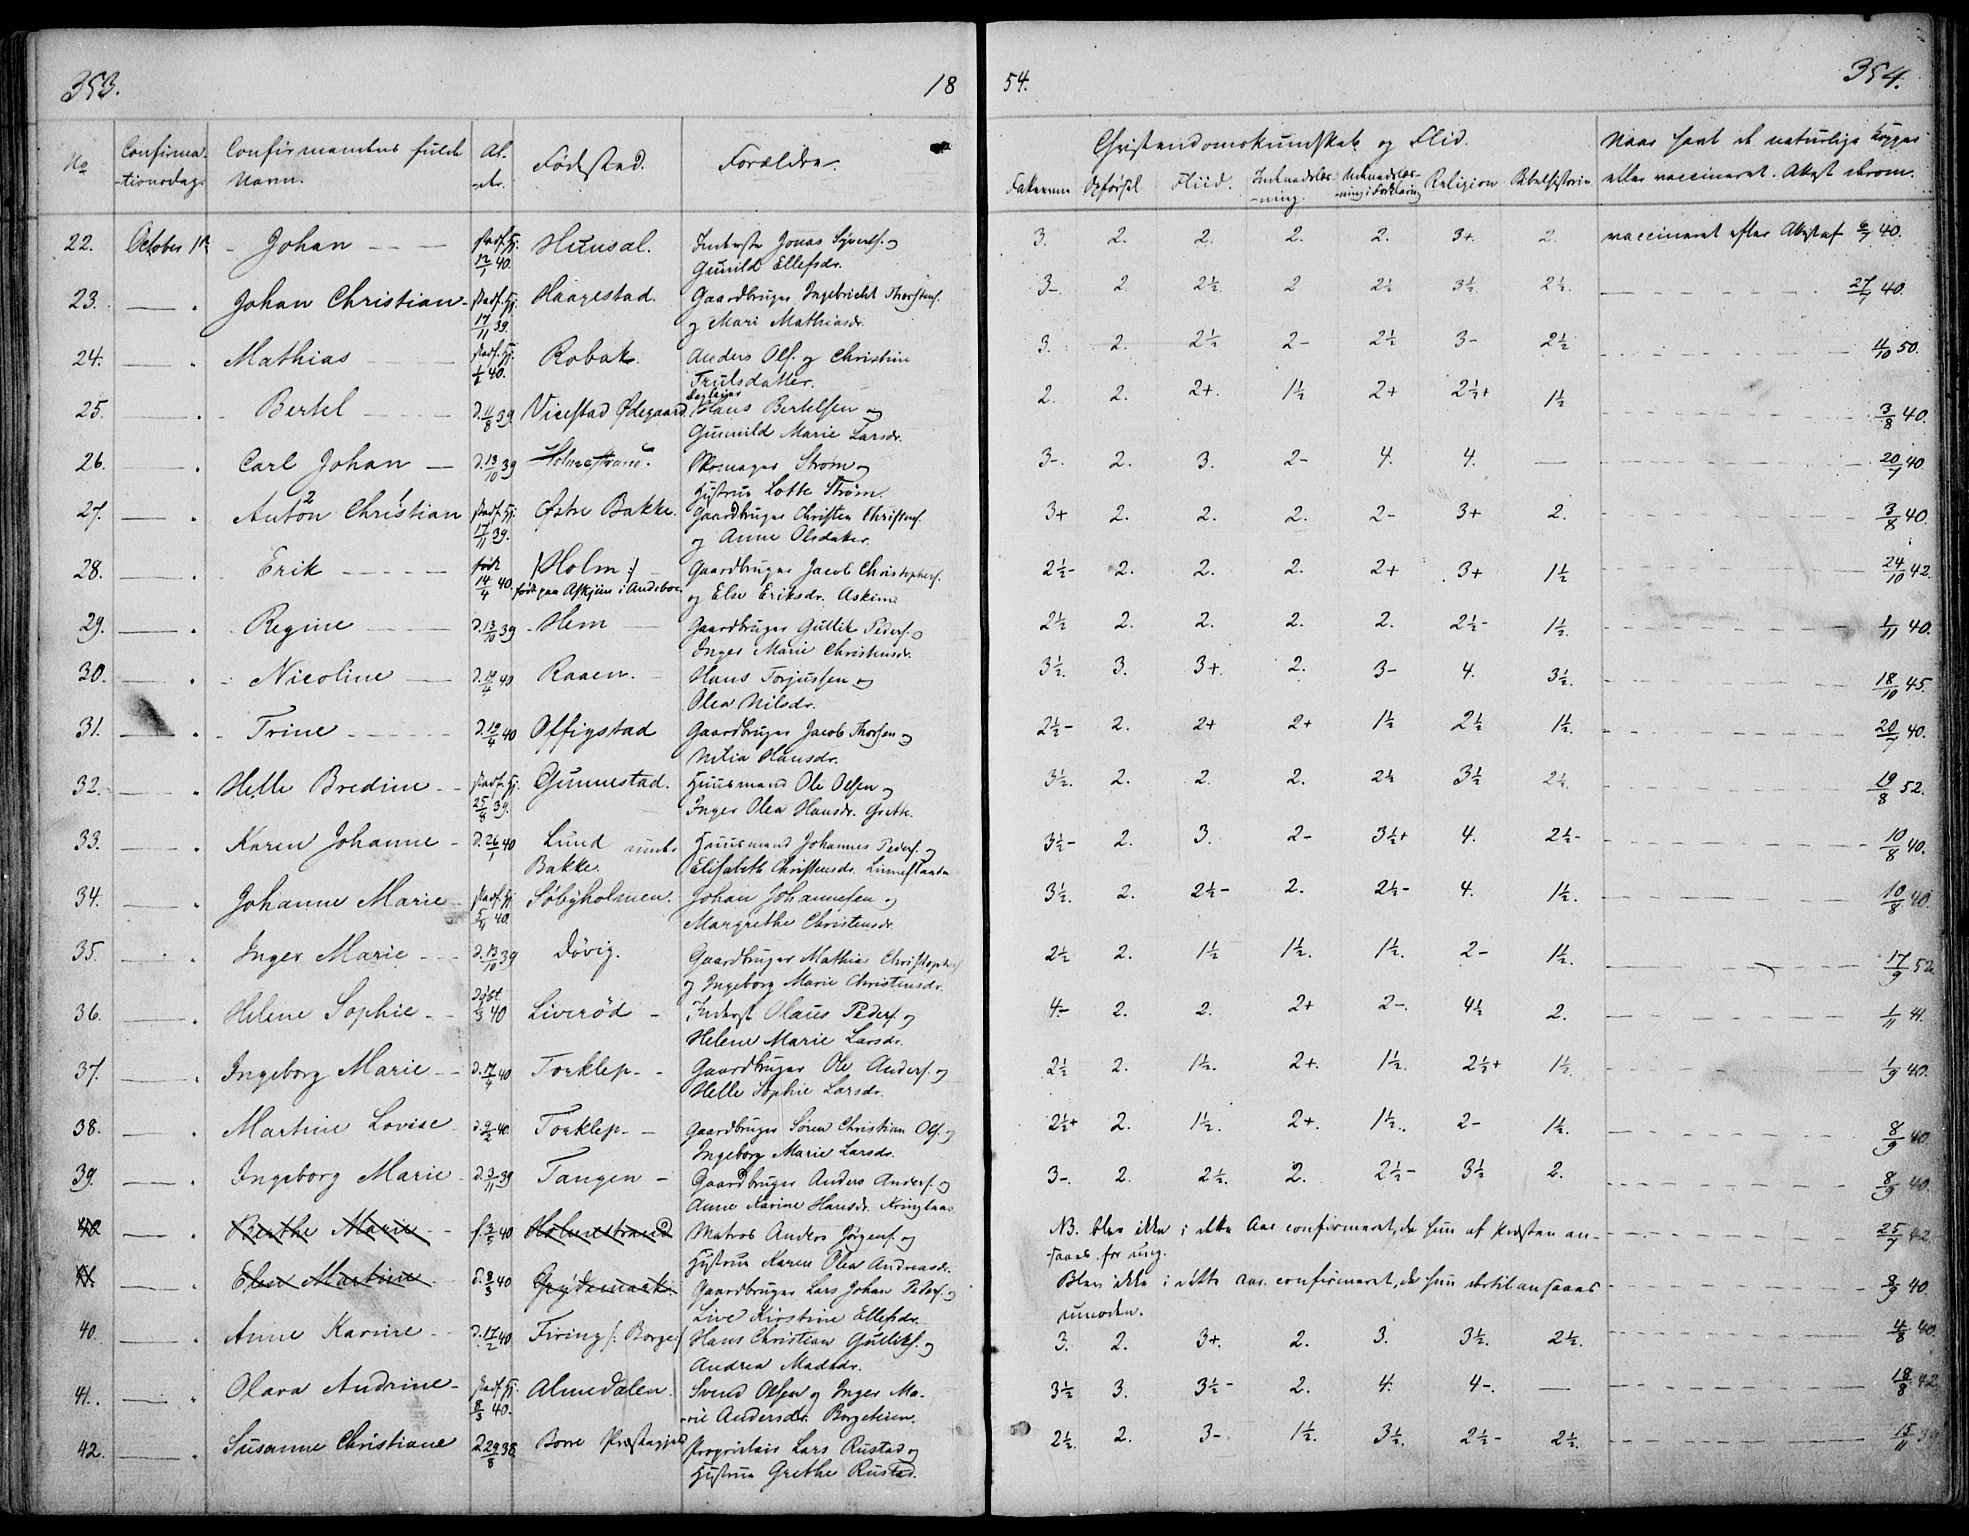 353.
18
54.
354.
No
Confirma-
-tionsdag.
Confirmandens fulde
Navn.
Al-
-der.
Fødested.
Forældre.
Christendomskundskab og Flid.
Opførsel
Fliid.
Religion
Bibelhistorie
Naar havt de naturlige Kopper
eller vaccineret. Attest derom.
22. October 1ste Johan 12/1 40. Huusal.
Gunild Ellefsdr.
3. 2. 2. 2. 2. 3+ 2. vaccineret efter Attest af 6/7 40.
23. Johan Christian 17/11 39. Haagestad. Gaardbruger Ingebricht Thorstens.
og Mari Mathiasdr.
3-. 2. 2½. 2. 2½ 3½. 2½. 27/7 40.
24. Mathias 40. Robak. Anders Ols. og Christine
Trulsdatter.
3. 2. 2½ 2- 2½ 3- 2½ 11/10 50.
25. Bertel D. 11/8 39 Vivestad Ødegaard. Hans Bertelsen og
Gunnild Marie Larsdr.
2. 2. 2+ 1½ 2+ 2½+ 1½ 3/8 40.
26. Carl Johan D. 13/10 39 Holmestrand. Skomager Strøm og
Hustrue Lotte Strøm.
3-. 2. 3. 2- 4. 4. 20/7 40.
27. Anton Christian 17/11 39. Østre Bakke. Gaardbruger Christen Christens.
og Anne Olsdatter.
3+ 2. 2. 2. 2- 3+ 2. 3/8 40.
28. Erik født 14/4 40 Holm født paa Askjem i Andeboe. Gaardbruger Jacob Christophers.
og Else Eriksdr. Askim
2½- 2. 2. 2. 2+ 3+ 1½ 24/10 42.
29. Regine D. 13/10 39 Hem Gaardbruger Gullik Peders. og
Inger Marie Christensdr.
2½ 2. 2. 2. 2. 2½- 1½. 1/11 40.
30. Nicoline D. 19/4 40 Raaen. Hans Torjussen og
Olea Nilsdr.
3½. 3. 3+. 2. 3- 4. 3½. 18/10 45.
31. Trine D. 19/4 40 Offigstad Gaardbruger Jacob Thorsen og
Hansdr.
2½- 2. 2+ 2+ 1½ 2½ 1½. 20/7 40.
32. Helle Bredine 25/8 39. Gunnestad. Huusmand Ole Olsen og
Inger Olea Hansdr.
3½. 2. 2. 2. 2½ 3½ 2½. 19/8 52.
33. Karen Johanne D. 26/1 40 Lund under
Bakke. Huusmand Johannes Peders. og
Elisabeth Christensdr.
3½- 2. 3. 2- 3½+ 4. 2½- 10/8 40.
34. Johanne Marie 5/4 40. Søbyholmen. Johan Johannesen og
Margrethe Christensdr.
3½. 2. 2½- 2. 2½- 4. 1½. 10/8 40.
35. Inger Marie D. 13/10 39 Døvig. Gaardbruger Mathias Christophers
og Ingeborg Marie Christensdr.
2½ 2. 1½ 1½. 1½. 2- 1½. 17/9 52.
36. Helene Sophie Døbt 40 Liverød Inderst Olaus Peders. og
Helene Marie Larsdr.
4.- 2. 2. 2+ 2-. 4½ 2. 1/11 41.
37. Ingeborg Marie D. 17/4 40 Torklep Gaardbruger Ole Anders. og
Helle Sophie Larsdr.
2½ 2. 1½. 2+. 1½. 2½+ 1½. 1/9 40.
38. Martine Lovise D. 9/2 40. Torklep Gaardbruger Søren Christian Ols. og
Ingeborg Marie Larsdr.
2½+ 2. 1½. 2+. 1½. 2- 1½. 8/9 40.
39. Ingeborg Marie D. 3/11 39 Tangen Gaardbruger Anders Anders. og
Anne Karine Hansdr.
3-. 2. 2½. 2. 2½- 3½ 2. 8/9 40.
40 Berthe Marie f. 3/5 40 Holmestrand Matros Anders Jørgens. og
Hustrue Karen Olea Andreasdr.
NB. blev ikke i dette Aar confirmeret, da hun af Præsten an-
-saaes for ung. 25/7 42.
41 Else Martine D. 8/3 40 Grydemark. Gaardbruger Lars Johan Peders. og
Live Kirstine Ellefsdr.
Blev ikke i dette Aar confirmeret, da hun dertil ansaaes
umoden. 8/9 40.
40. Anne Karine D. 17/2 40 Firing /: Borge :/ Hans Christian Gulliks. og
Andrea Madsdr.
3. 2. 3+. 2. 3. 3½. 2½. 4/8 40.
41. Olava Andrine 8/3 40. Almedalen. Svend Olsen og Inger Ma-
-rie Andersdr. Borgeteien.
3½ 3. 3½- 2. 4. 4-. 18/8 42.
42. Susanne Christiane D. 29/8 38 Borre Præstegjeld Proprietair Lars Rustad og
Hustrue Grethe Rustad.
2½. 2. 3- 1½. 3½. 2½- 2½.